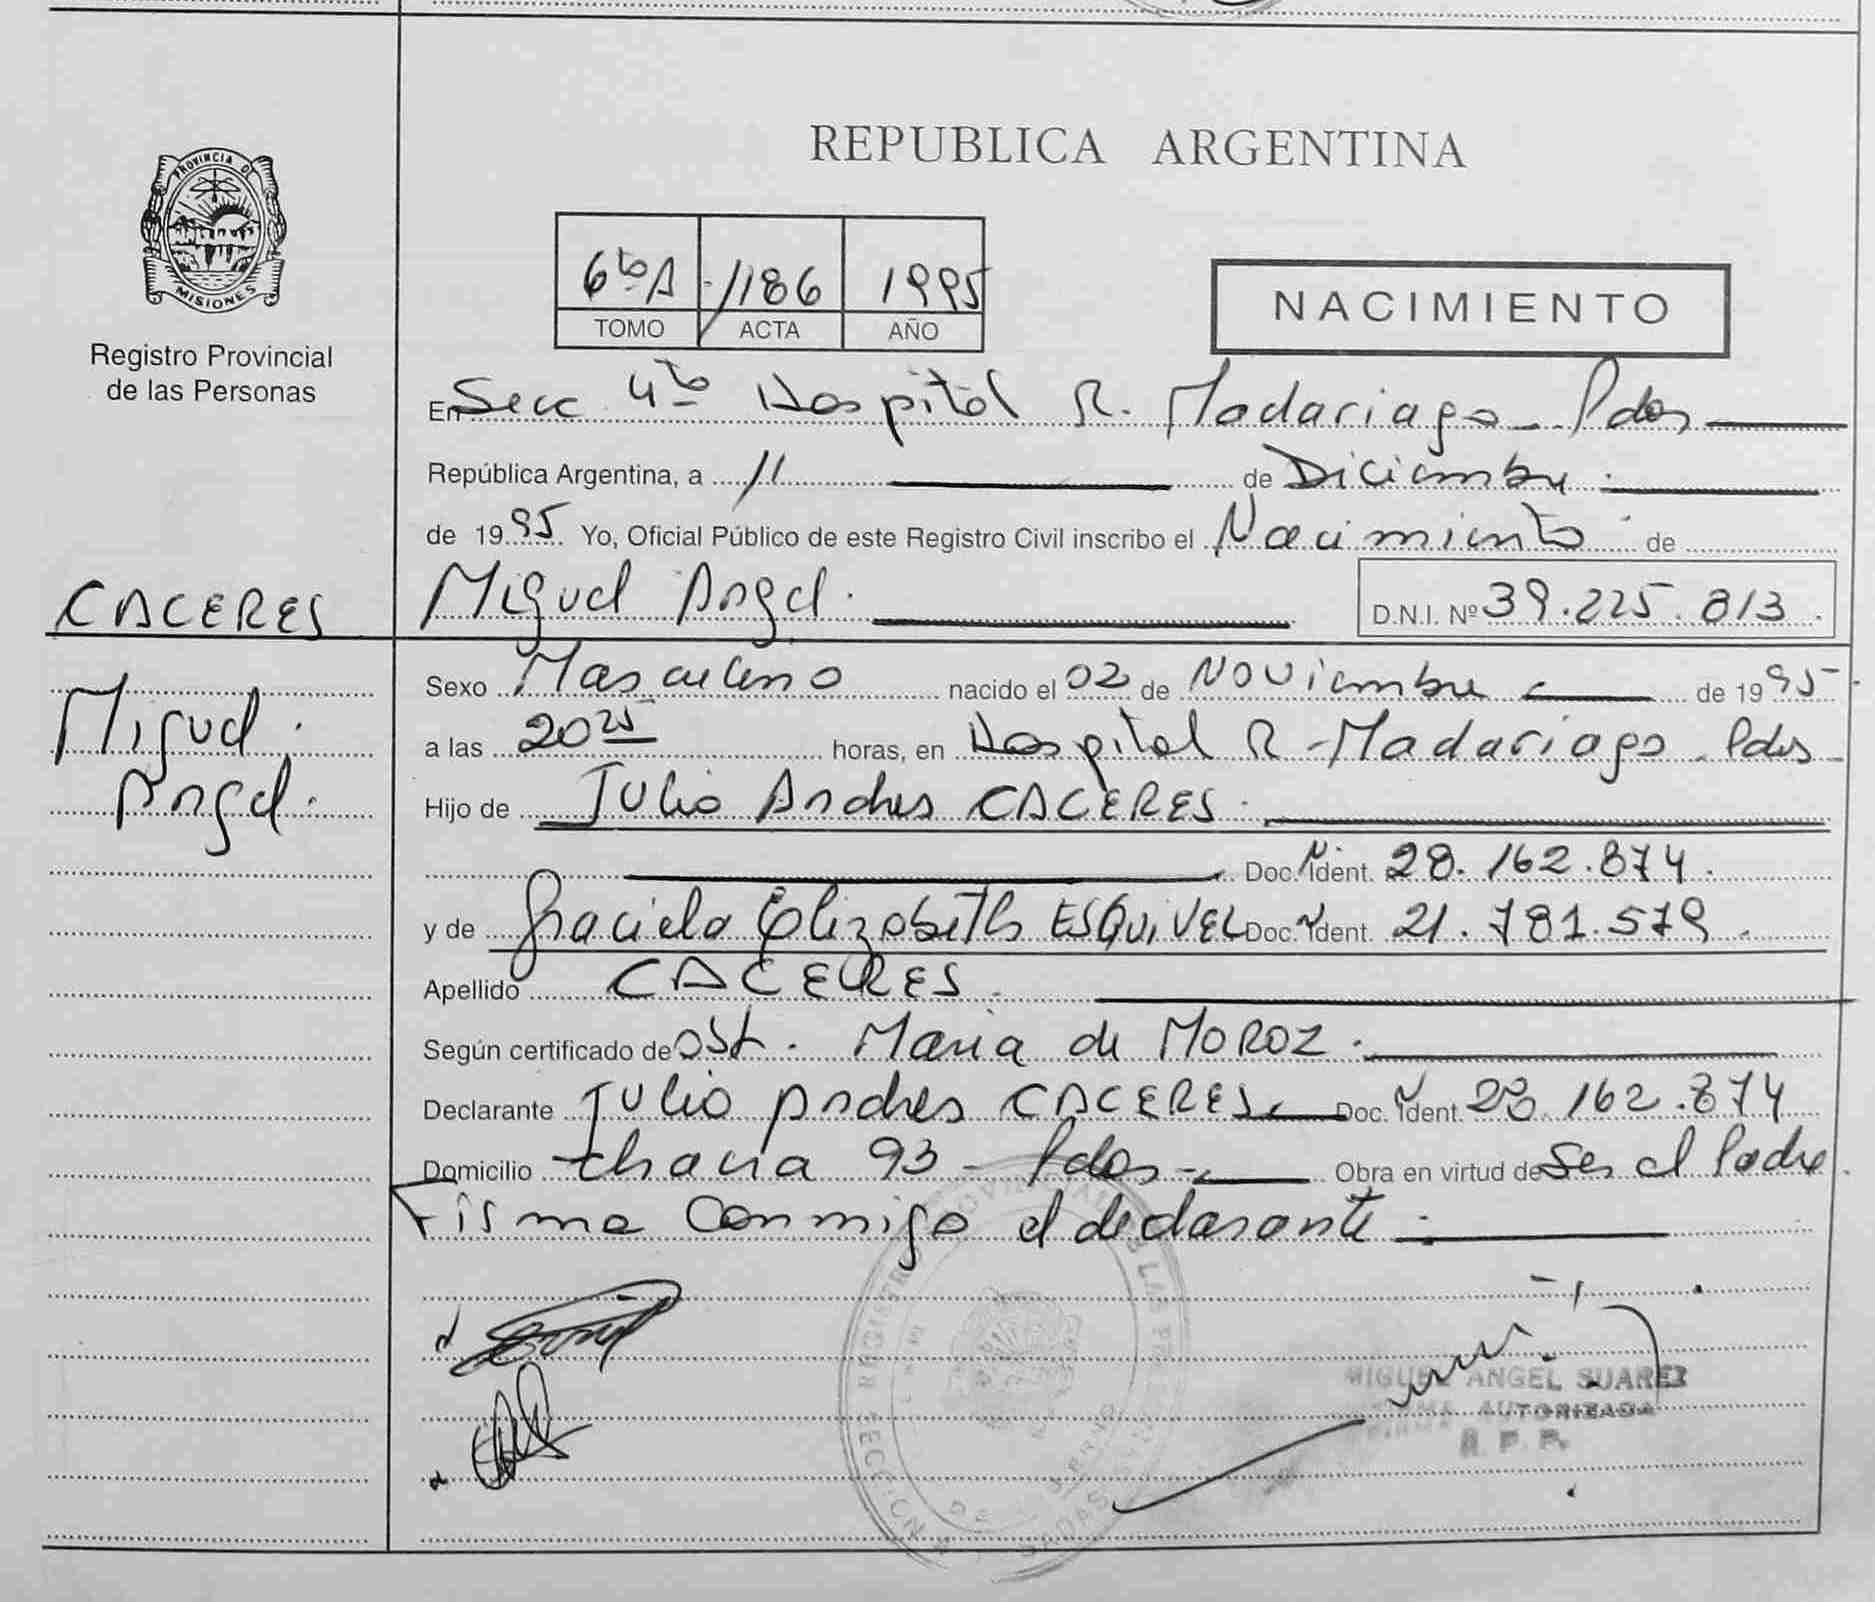 REPUBLICA ARGENTINA
PROVINCIA DE
MISIONES
Registro Provincial
de las Personas
6to A 1186 1995
TOMO ACTA AÑO
NACIMIENTO
En Secc 4ta Hospital R. Madariaga - Pdas
República Argentina, a 11 de Diciembre
de 1995 Yo, Oficial Público de este Registro Civil inscribo el Nacimiento de
CACERES
Miguel Angel. D.N.I. Nº 39.225.813.
Miguel
Angel.
Sexo Masculino nacido el 02 de Noviembre de 1995
a las 20 25 horas, en Hospital R. Madariaga - Pdas
Hijo de Julio Andres CACERES.
Doc. Ident. 28.162.874.
y de Graciela Elizabeth ESQUIVEL Doc. Ident. 21.781.579.
Apellido CACERES.
Según certificado de Obst. Maria de MOROZ.
Declarante Julio Andres CACERES Doc. Ident. 28.162.874
Domicilio 93 - Pdas - Obra en virtud de Ser el Padre.
Firma Conmigo el declarante.
MIGUEL ANGEL SUAREZ
FIRMA AUTORIZADA
R. P. P.